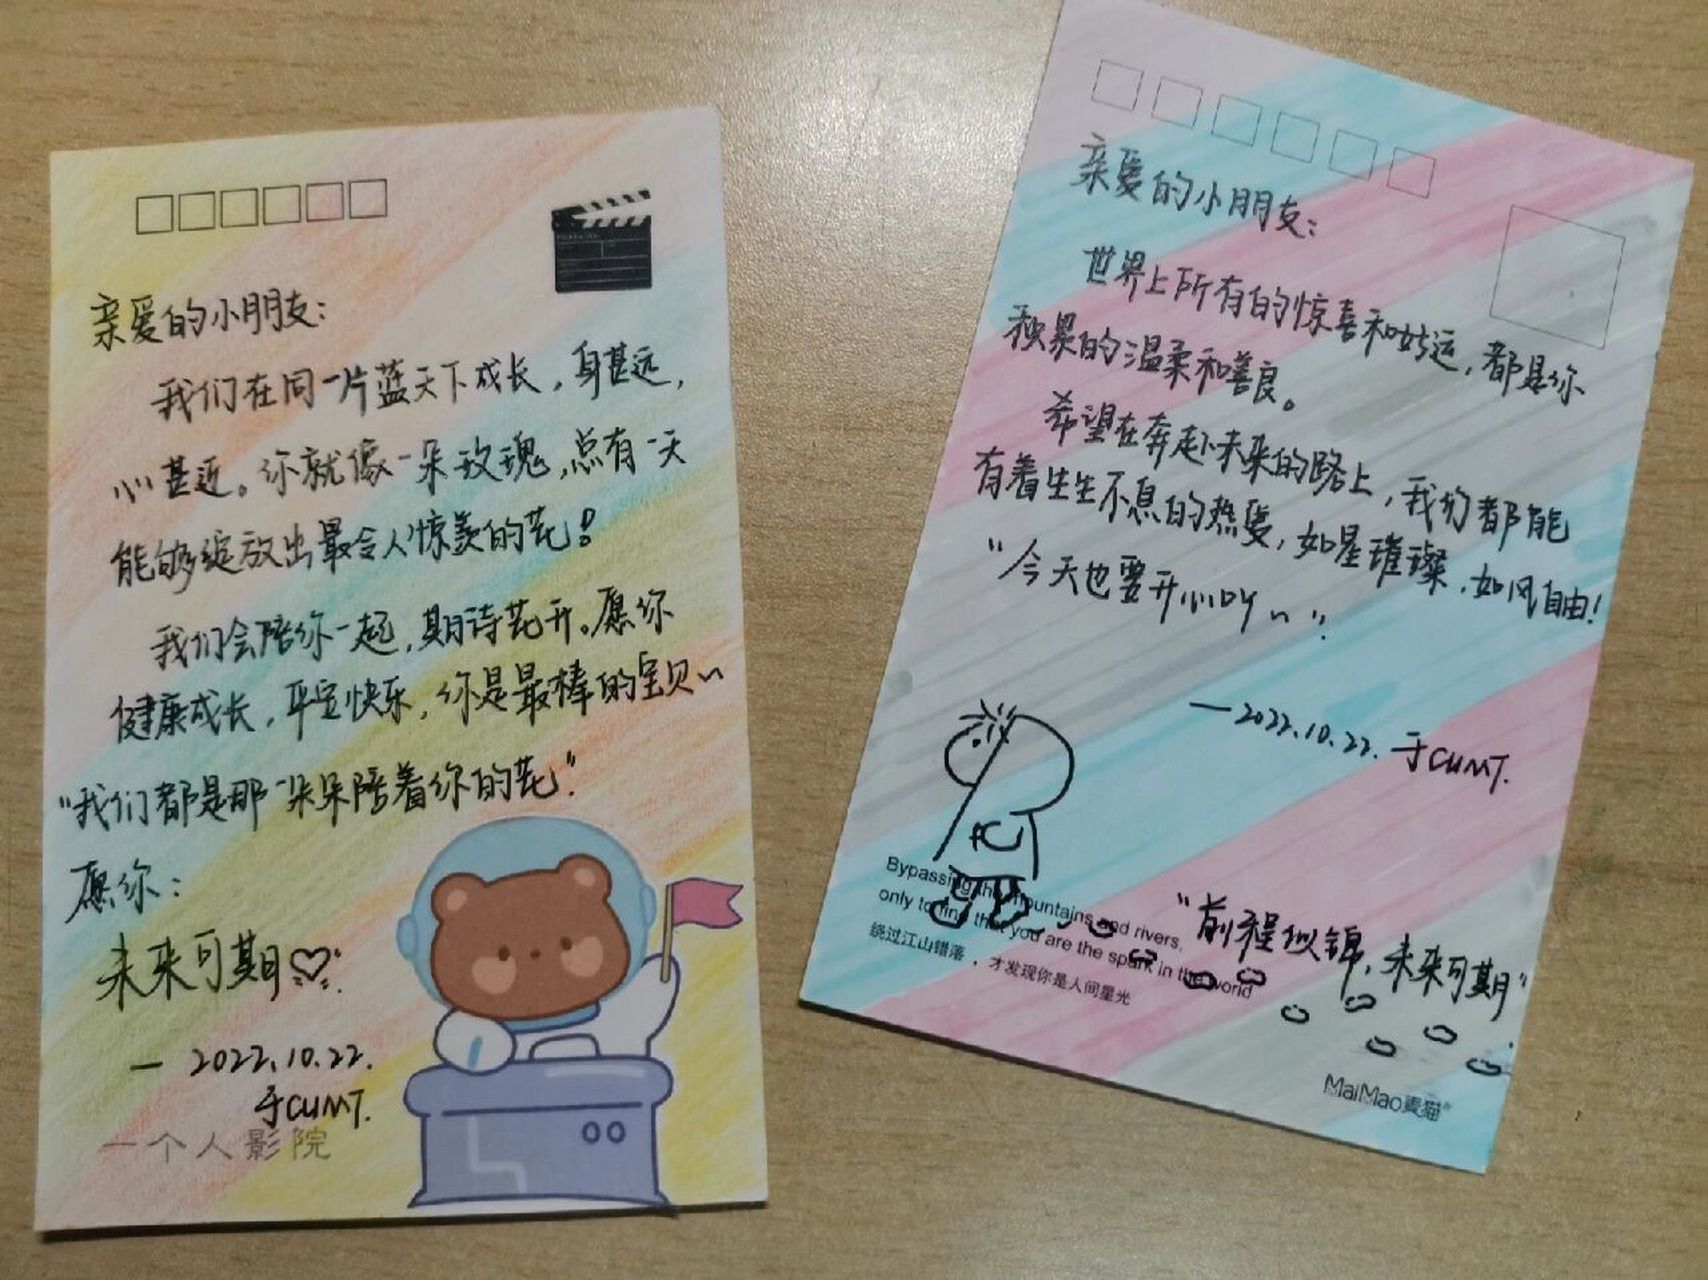 亲爱的小朋友：
我们在同一片蓝天下成长，身甚远，
心甚近。你就像一朵玫瑰，总有一天
能够绽放出最令人惊羡的花！
我们会陪你一起，期待花开。愿你
健康成长，平安快乐，你是最棒的宝贝~
"我们都是那一朵朵陪着你的花"
愿你：
未来可期♡
— 2022.10.22.
于CUMT.
一个人影院
亲爱的小朋友：
世界上所有的惊喜和好运，都是你
积累的温柔和善良。
希望在奔赴未来的路上，我们都能
有着生生不息的热爱，如星璀璨，如风自由！
"今天也要开心吖~"
—2022.10.22. 于CUMT.
Bypassing the mountains and rivers,
only to find that you are the spark in the world
绕过江山错落，才发现你是人间星光
"前程似锦，未来可期"
MaiMao麦猫®